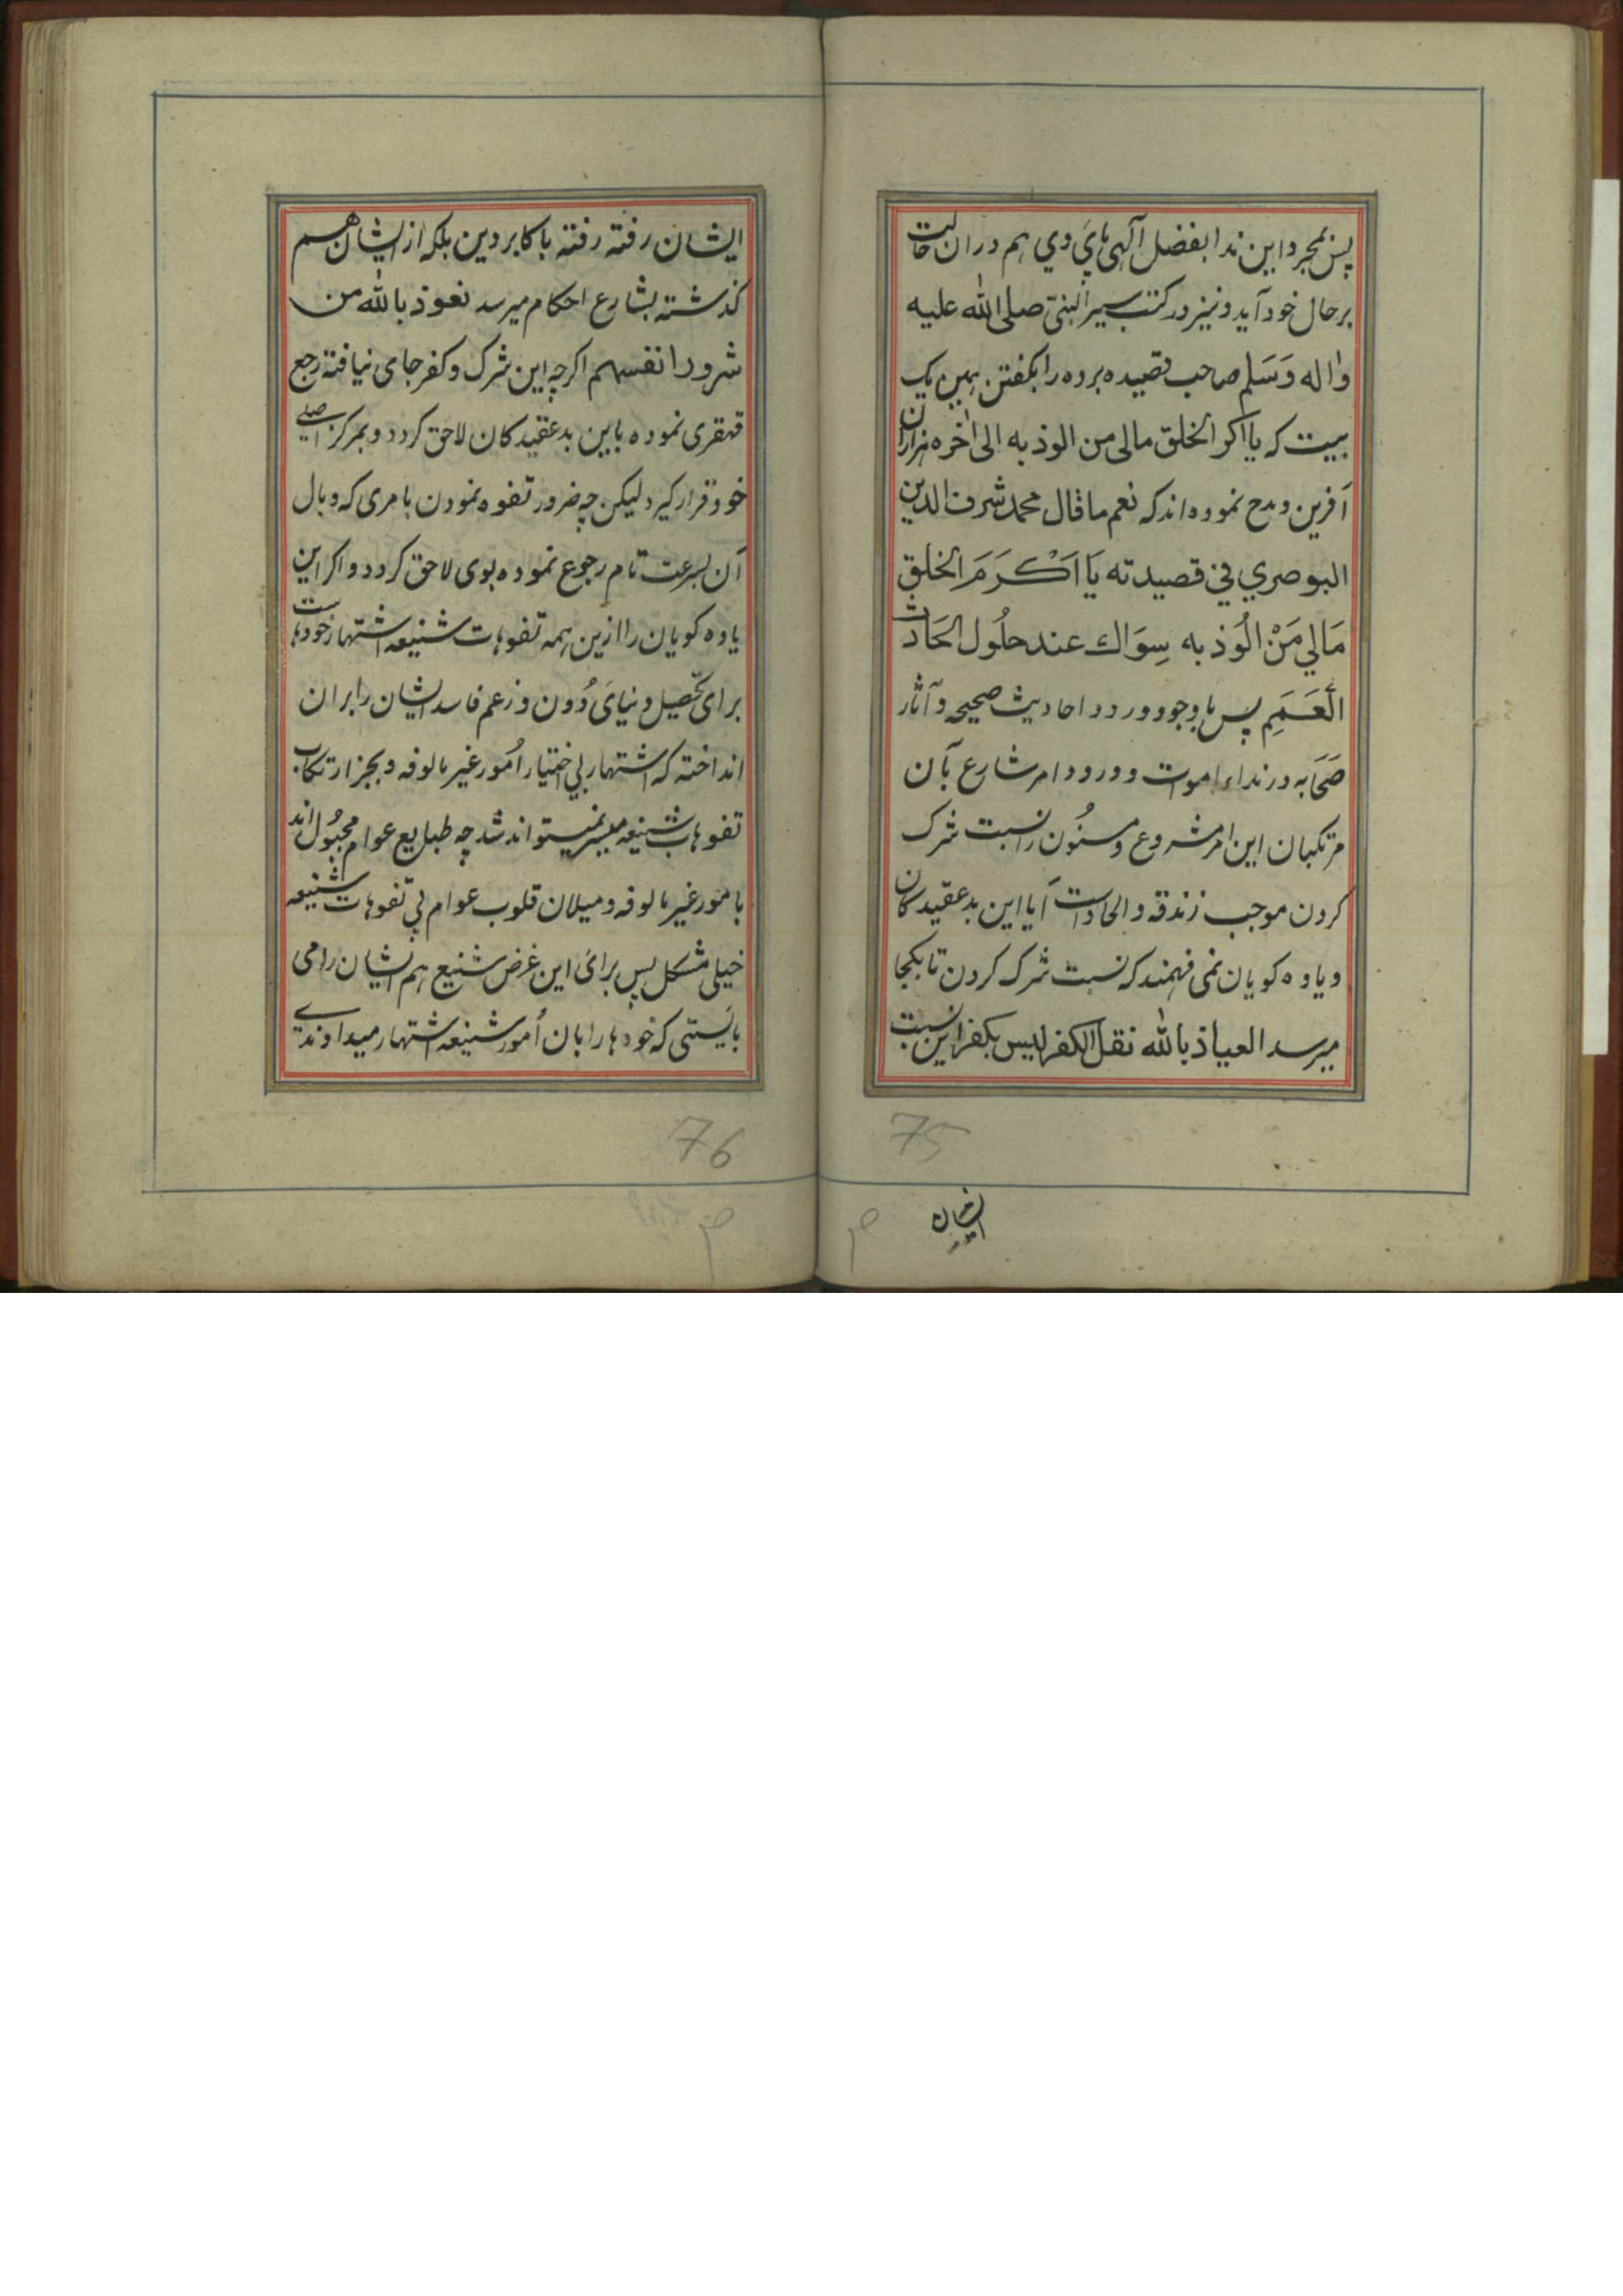 پس بمجرد این ندا بفضل آلهی پای وی هم دران حالت
بر حال خود آید و نیز در کتب سیر النبی صلی الله علیه
واله وَسَلم صاحب قصیده برده را بکفتن همین یک
بیت که یا اکر الخلق مالی من الوذ به الی اخره هزاران
آفرین و مدح نموده اند که نعم ما قال محمد شرف الدین
البوصري في قصیدته یَا اَکْرَمَ الخلق
مَالي مَنْ الُوذ به سِوَاك عند حلُول الحَادث
العَمَمِ پس با وجود ورود احادیث صحیحه و آثار
صَحَابه در نداء اموات و ورود امر شارع بآن
مرتکبان این امر مشروع و مسنُون را نسبت شرک
کردن موجب زندقه و الحاد است آیا این بد عقیدکان
و یاوه کویان نمی فهمند که نسبت شرک کردن تا بکجا
میرسد العیاذ بالله نقل الکفر لیس بکفر این نسبت
75
ایشان
ایشان رفته رفته با کابر دین بلکه از ایشان هم
کذشته بشارع احکام میرسد نعوذ بالله من
شرور انفسهم اکرچه این شرک و کفر جای نیافته رجع
قهقری نموده باین بد عقیدکان لاحق کردد و بمرکز اصلی
خود قرار کیرد لیکن چه ضرور تفوه نمودن بامری که وبال
آن بسرعت تام رجوع نموده بوی لاحق کردد و اکر این
یاوه کویان را ازین همه تفوهات شنیعه اشتهار خودهاست
برای تحصیل دنیای دُون و زعم فاسد ایشان را بران
انداخته که اشتهار بی اختیار اُمور غیر مالوفه و بجز ارتکاب
تفوهات شنیعه میسر نمیتواند شد چه طبایع عوام مجبُول اند
بامور غیر مالوفه و میلان قلوب عوام بی تفوهات شنیعه
خیلی مشکل پس برای این غرض شنیع هم ایشان را می
بایستی که خودها را بان اُمور شنیعه اشتهار میدادندے
76